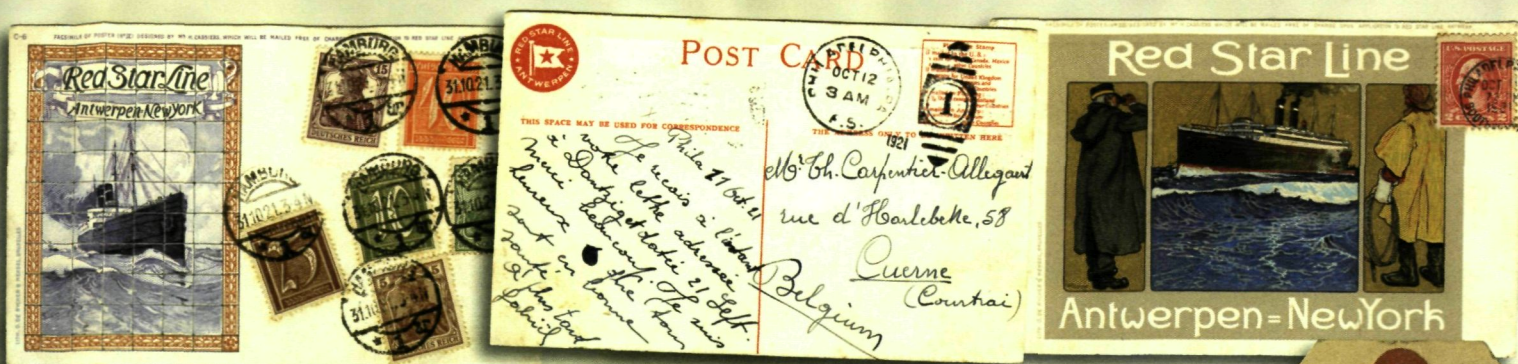 C-6
FACSIMILE OF POSTER DESIGNED BY MR H. CASSIERS, WHICH WILL BE MAILED FREE OF CHARGE
TO RED STAR LINE
Red Star Line
Antwerpen-New York
HAMBURG
15
DEUTSCHES REICH
HAMBURG
31.10.21.3
HAMBURG
31.10.21.3-4N
75
HAMBURG
10
31.10
DEUTSCHES REICH
RED STAR LINE
ANTWERPEN
POST CARD
PHILADELPHIA
OCT 12
3 AM
1921
1
THIS SPACE MAY BE USED FOR CORRESPONDENCE
THE ADDRESS ONLY TO
TEN HERE
Phila 11 Oct 21
Je reçois à l'instant
votre lettre adressée
à Dantzig et datée 21 Sept.
merci beaucoup. Je suis
heureux que tous
sont en bonne
santé
à plus tard
Gabriel
Mr Th. Carpentier-Allegaert
rue d'Harlebeke, 58
Cuerne
(Courtrai)
Belgium
Red Star Line
Antwerpen=New York
U.S. POSTAGE
2